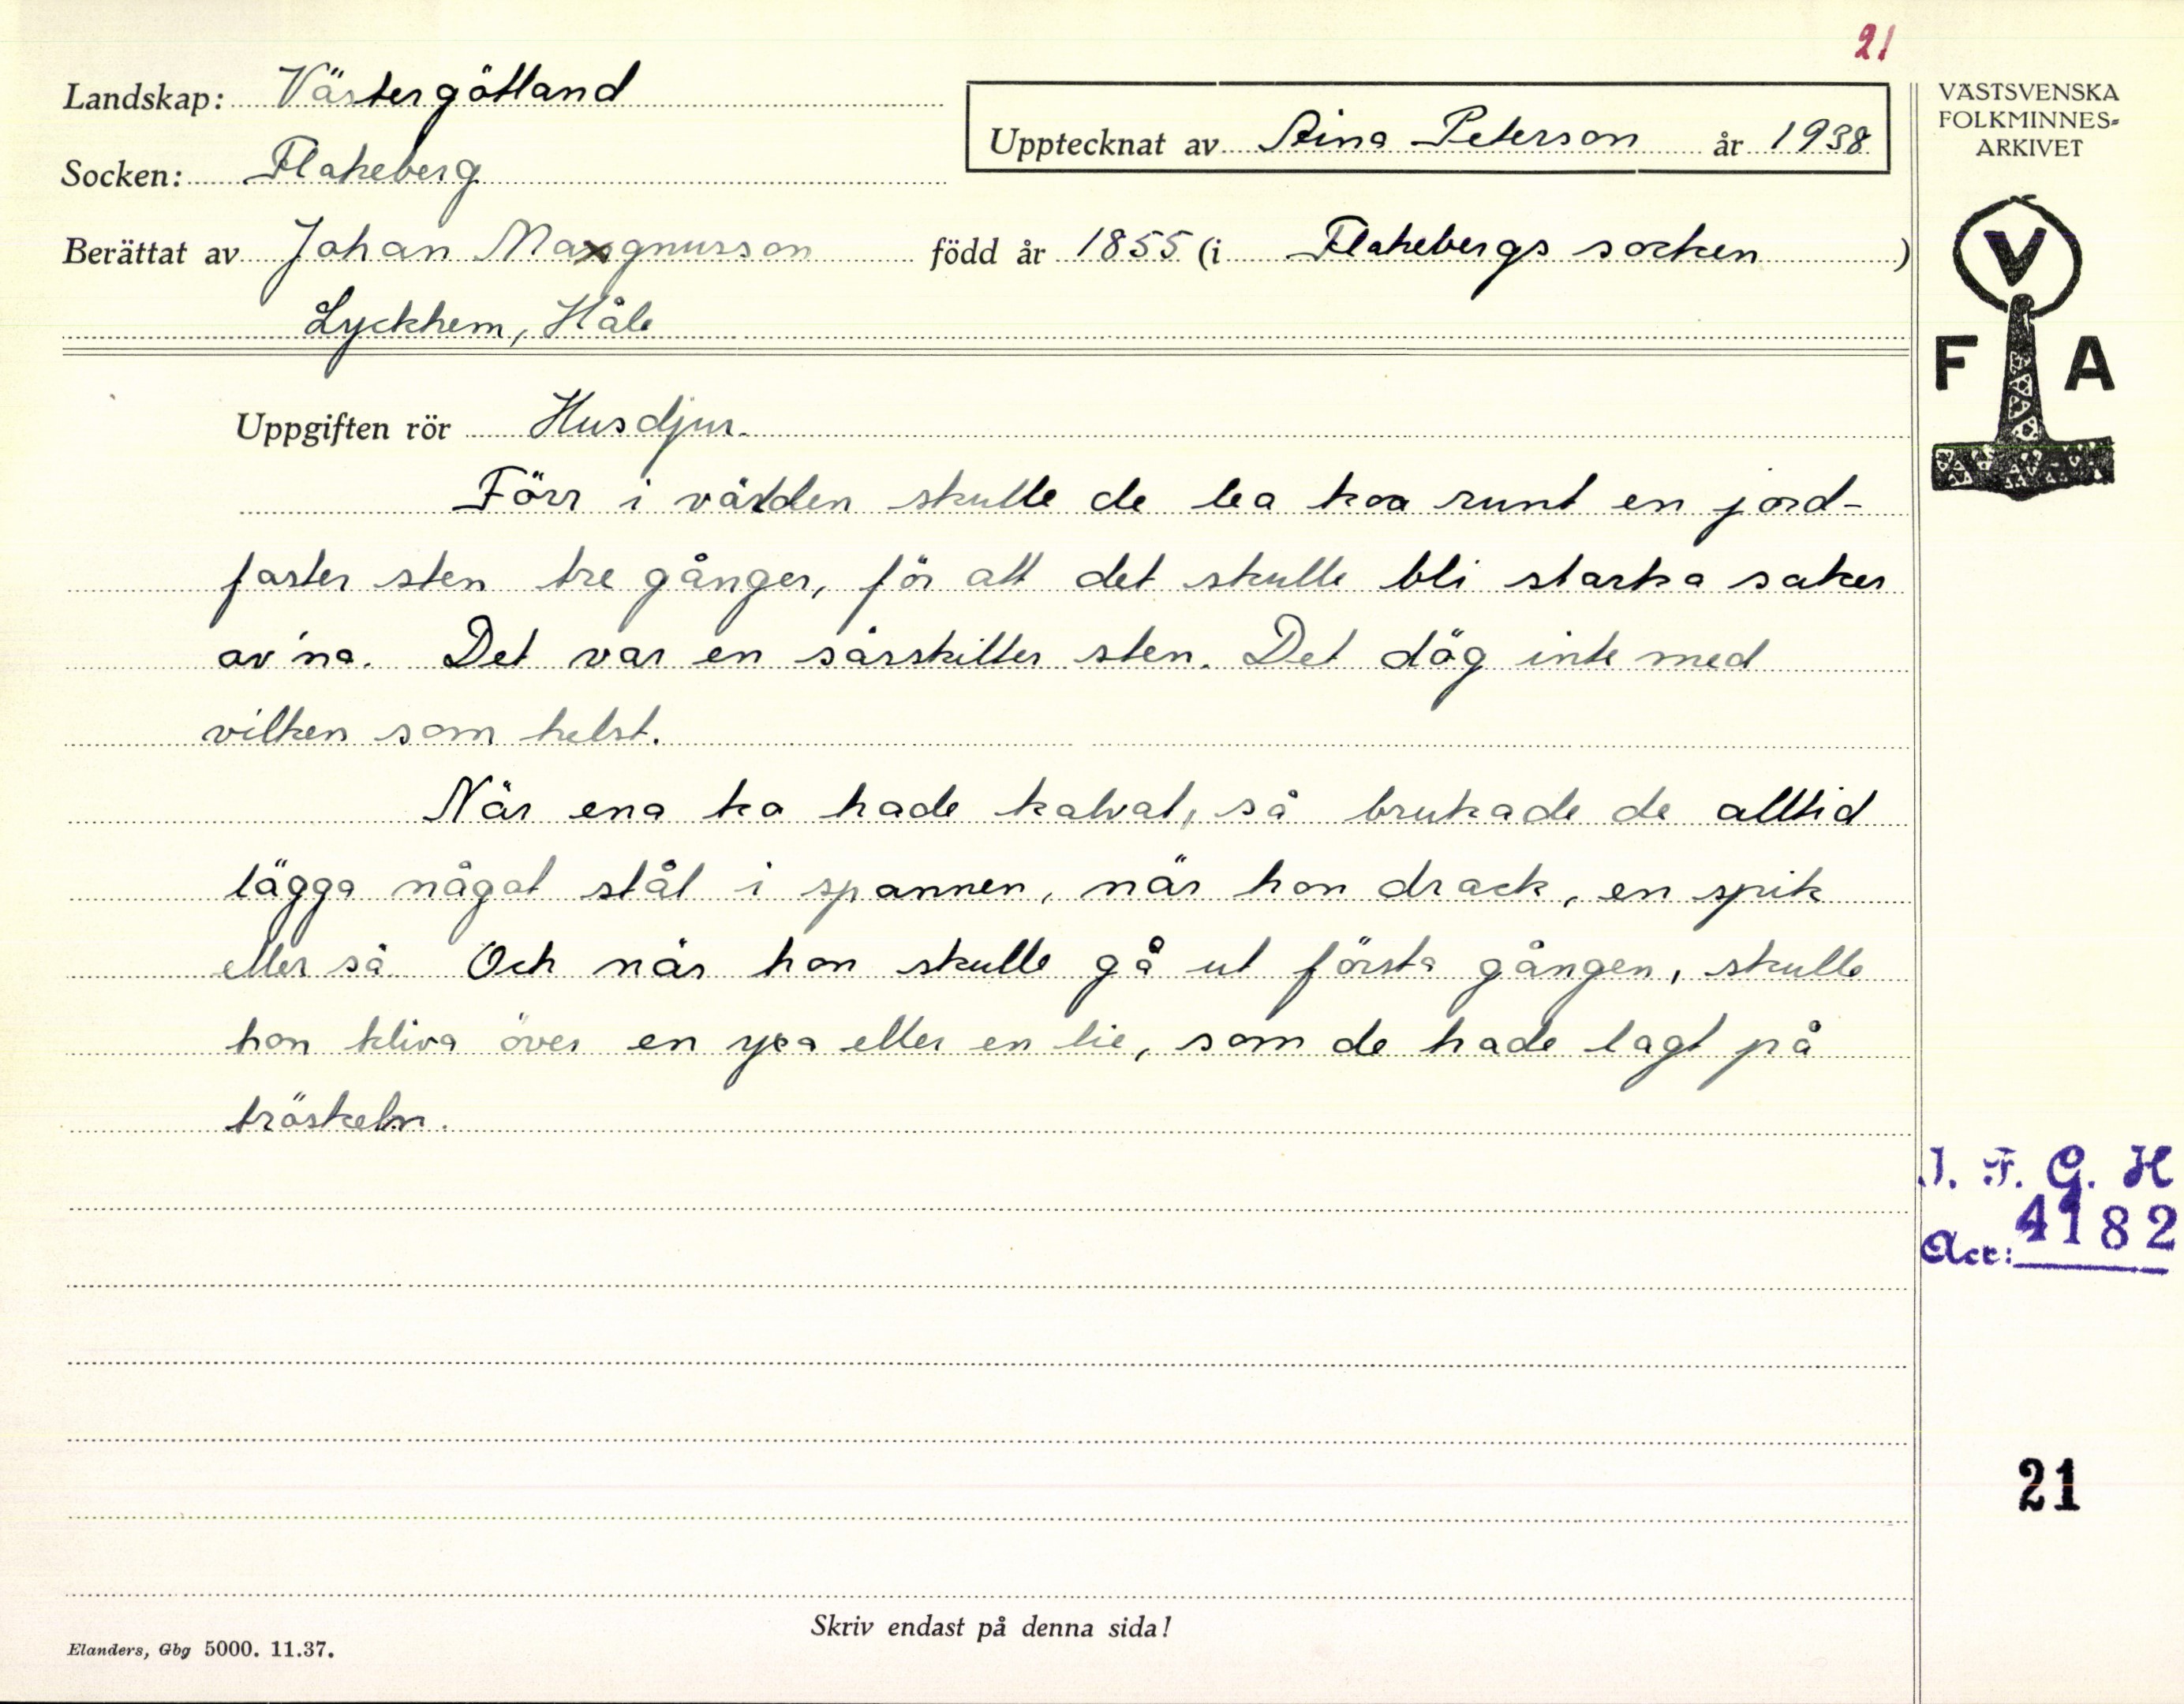 21
Landskap: Västergötland
Upptecknat av Stina Peterson år 1938
Socken: Flakeberg
Berättat av Johan Magnusson född år 1855 (i Flakebergs socken)
Lyckhem, Håle
Uppgiften rör Husdjur.
Förr i världen skulle de lea koa runt en jord-
faster sten tre gånger, för att det skulle bli starka saker
av'na. Det var en särskilter sten. Det dög inte med
vilken som helst.
När ena ko hade kalvat, så brukade de alltid
lägga något stål i spannen, när hon drack, en spik
eller så. Och när hon skulle gå ut första gången, skulle
hon kliva över en yxa eller en lie, som de hade lagt på
tröskeln.
Skriv endast på denna sida!
Elanders, Gbg 5000. 11.37.
VÄSTSVENSKA
FOLKMINNES-
ARKIVET
V
F A
I. F. G. H
Acc: 4182
21